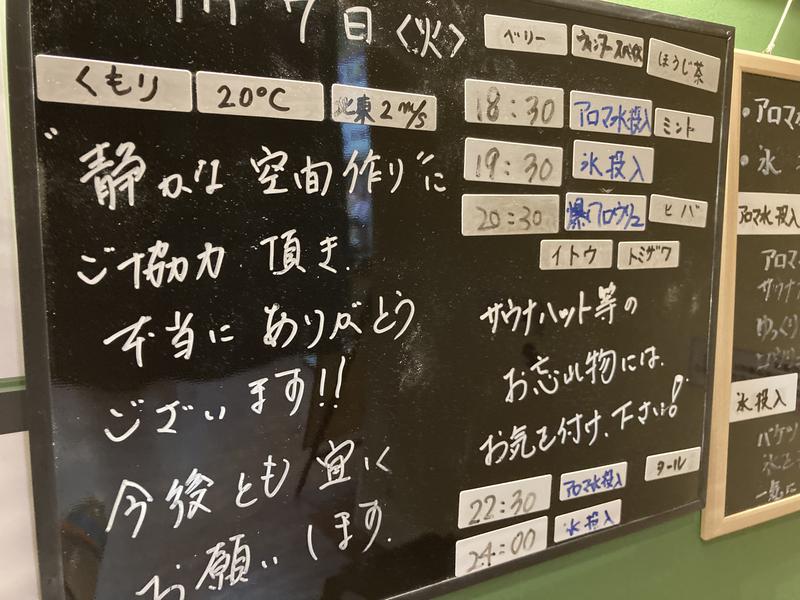 7日〈火〉
くもり 20℃ 北東2m/s
"静かな 空間作り"に
ご協力 頂き、
本当に ありがとう
ございます!!
今後とも 宜しく
お願いします。
ベリー ほうじ茶
18:30 アロマ水投入 ミント
19:30 氷投入
20:30 爆アロウリュ ヒバ
イトウ トミザワ
サウナハット等の
お忘れ物には、
お気を付け、下さい!
22:30 アロマ水投入
24:00 氷投入
・アロマ
・氷
アロマ水投入
アロマ
サウナ
ゆっくり
氷投入
バケツ
氷を
一気に